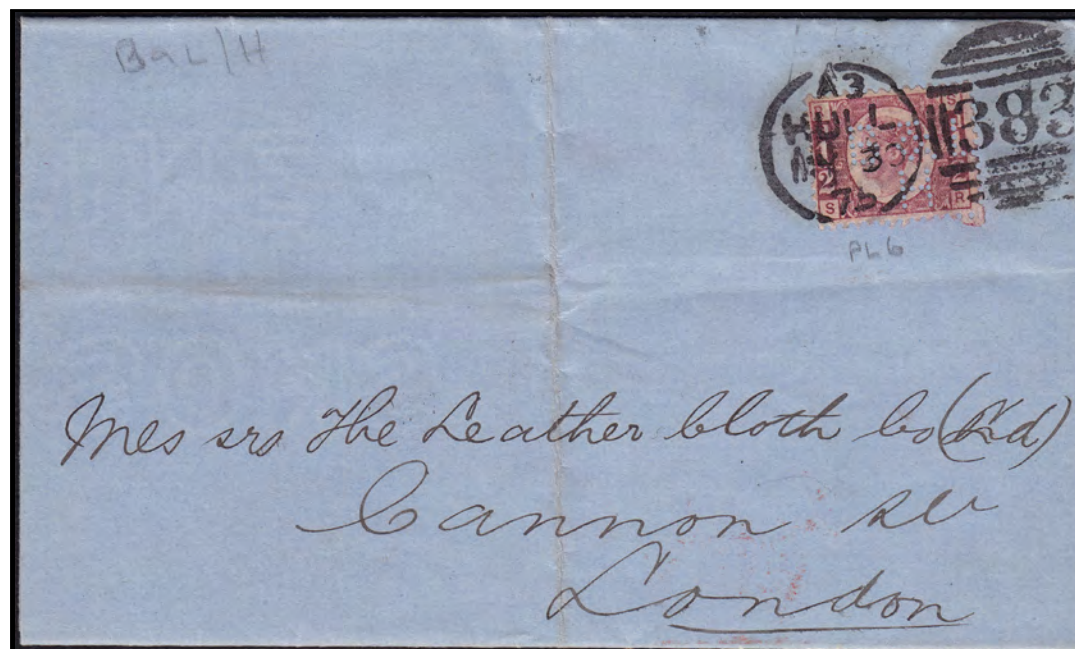 BaL/H
A3
HULL
75
383
R S
S R
PL 6
Messrs The Leather Cloth Co (Ld)
Cannon
London